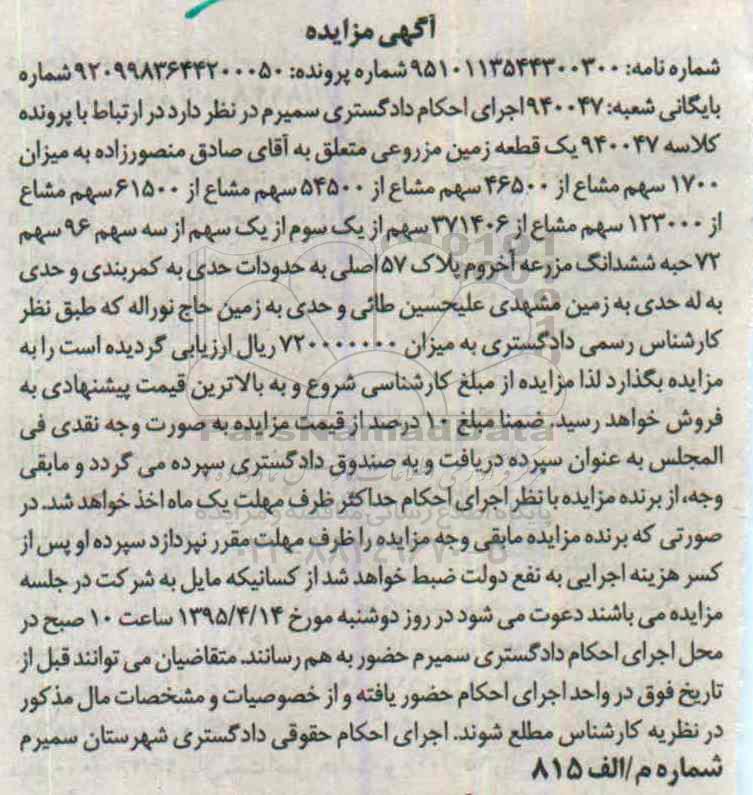 آگهی مزایده
شماره نامه: ۹۵۱۰۱۱۳۵۴۴۳۰۰۳۰۰ شماره پرونده: ۹۲۰۹۹۸۳۶۴۴۲۰۰۰۵۰ شماره
بایگانی شعبه: ۹۴۰۰۴۷ اجرای احکام دادگستری سمیرم در نظر دارد در ارتباط با پرونده
کلاسه ۹۴۰۰۴۷ یک قطعه زمین مزروعی متعلق به آقای صادق منصورزاده به میزان
۱۷۰۰ سهم مشاع از ۴۶۵۰۰ سهم مشاع از ۵۴۵۰۰ سهم مشاع از ۶۱۵۰۰ سهم مشاع
از ۱۲۳۰۰۰ سهم مشاع از ۳۷۱۴۰۶ سهم از یک سوم از یک سهم از سه سهم ۹۶ سهم
۷۲ حبه ششدانگ مزرعه آخروم پلاک ۵۷ اصلی به حدودات حدی به کمربندی و حدی
به له حدی به زمین مشهدی علیحسین طائی و حدی به زمین حاج نوراله که طبق نظر
کارشناس رسمی دادگستری به میزان ۷۲۰۰۰۰۰۰۰ ریال ارزیابی گردیده است را به
مزایده بگذارد لذا مزایده از مبلغ کارشناسی شروع و به بالاترین قیمت پیشنهادی به
فروش خواهد رسید. ضمنا مبلغ ۱۰ درصد از قیمت مزایده به صورت وجه نقدی فی
المجلس به عنوان سپرده دریافت و به صندوق دادگستری سپرده می گردد و مابقی
وجه، از برنده مزایده با نظر اجرای احکام حداکثر ظرف مهلت یک ماه اخذ خواهد شد. در
صورتی که برنده مزایده مابقی وجه مزایده را ظرف مهلت مقرر نپردازد سپرده او پس از
کسر هزینه اجرایی به نفع دولت ضبط خواهد شد از کسانیکه مایل به شرکت در جلسه
مزایده می باشند دعوت می شود در روز دوشنبه مورخ ۱۳۹۵/۴/۱۴ ساعت ۱۰ صبح در
محل اجرای احکام دادگستری سمیرم حضور به هم رسانند. متقاضیان می توانند قبل از
تاریخ فوق در واحد اجرای احکام حضور یافته و از خصوصیات و مشخصات مال مذکور
در نظریه کارشناس مطلع شوند. اجرای احکام حقوقی دادگستری شهرستان سمیرم
شماره م/الف ۸۱۵
ParsNamadData